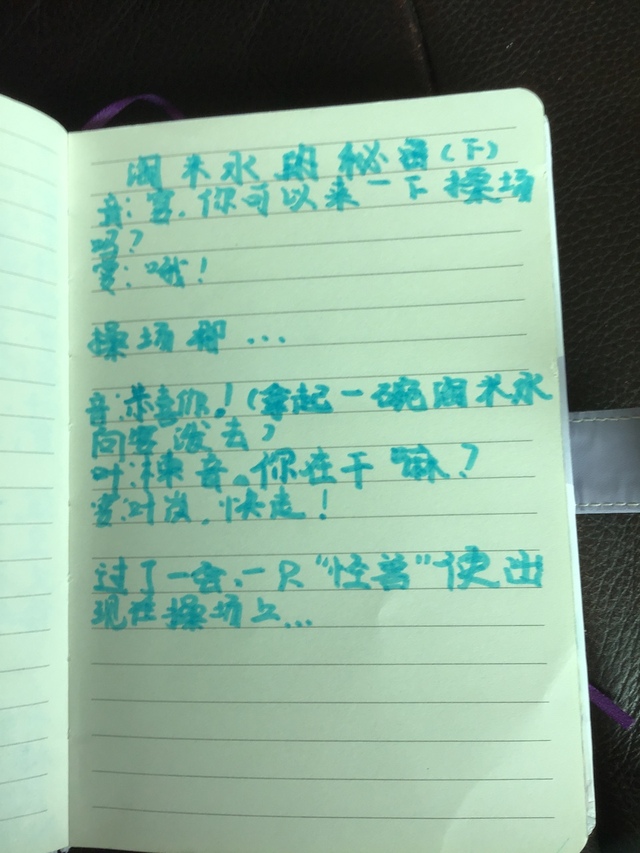 淘米水的秘密(下)
音:雯,你可以来一下操场
吗?
雯:哦!
操场那...
音:恭喜你!(拿起一碗淘米水
向雯泼去)
叶:陈音。你在干嘛?
雯:叶炭,快走!
过了一会、一只"怪兽"便出
现在操场上...